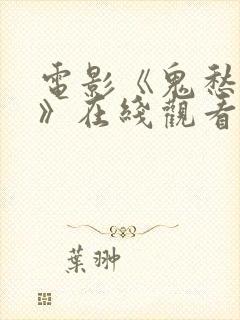 電影《鬼愁
》在綫觀看
葉翀